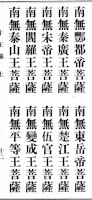 南無酆都帝菩薩　南無東岳帝菩薩
南無秦廣王菩薩　南無楚江王菩薩
南無宋帝王菩薩　南無伍官王菩薩
南無閻羅王菩薩　南無變成王菩薩
南無泰山王菩薩　南無平等王菩薩
十二